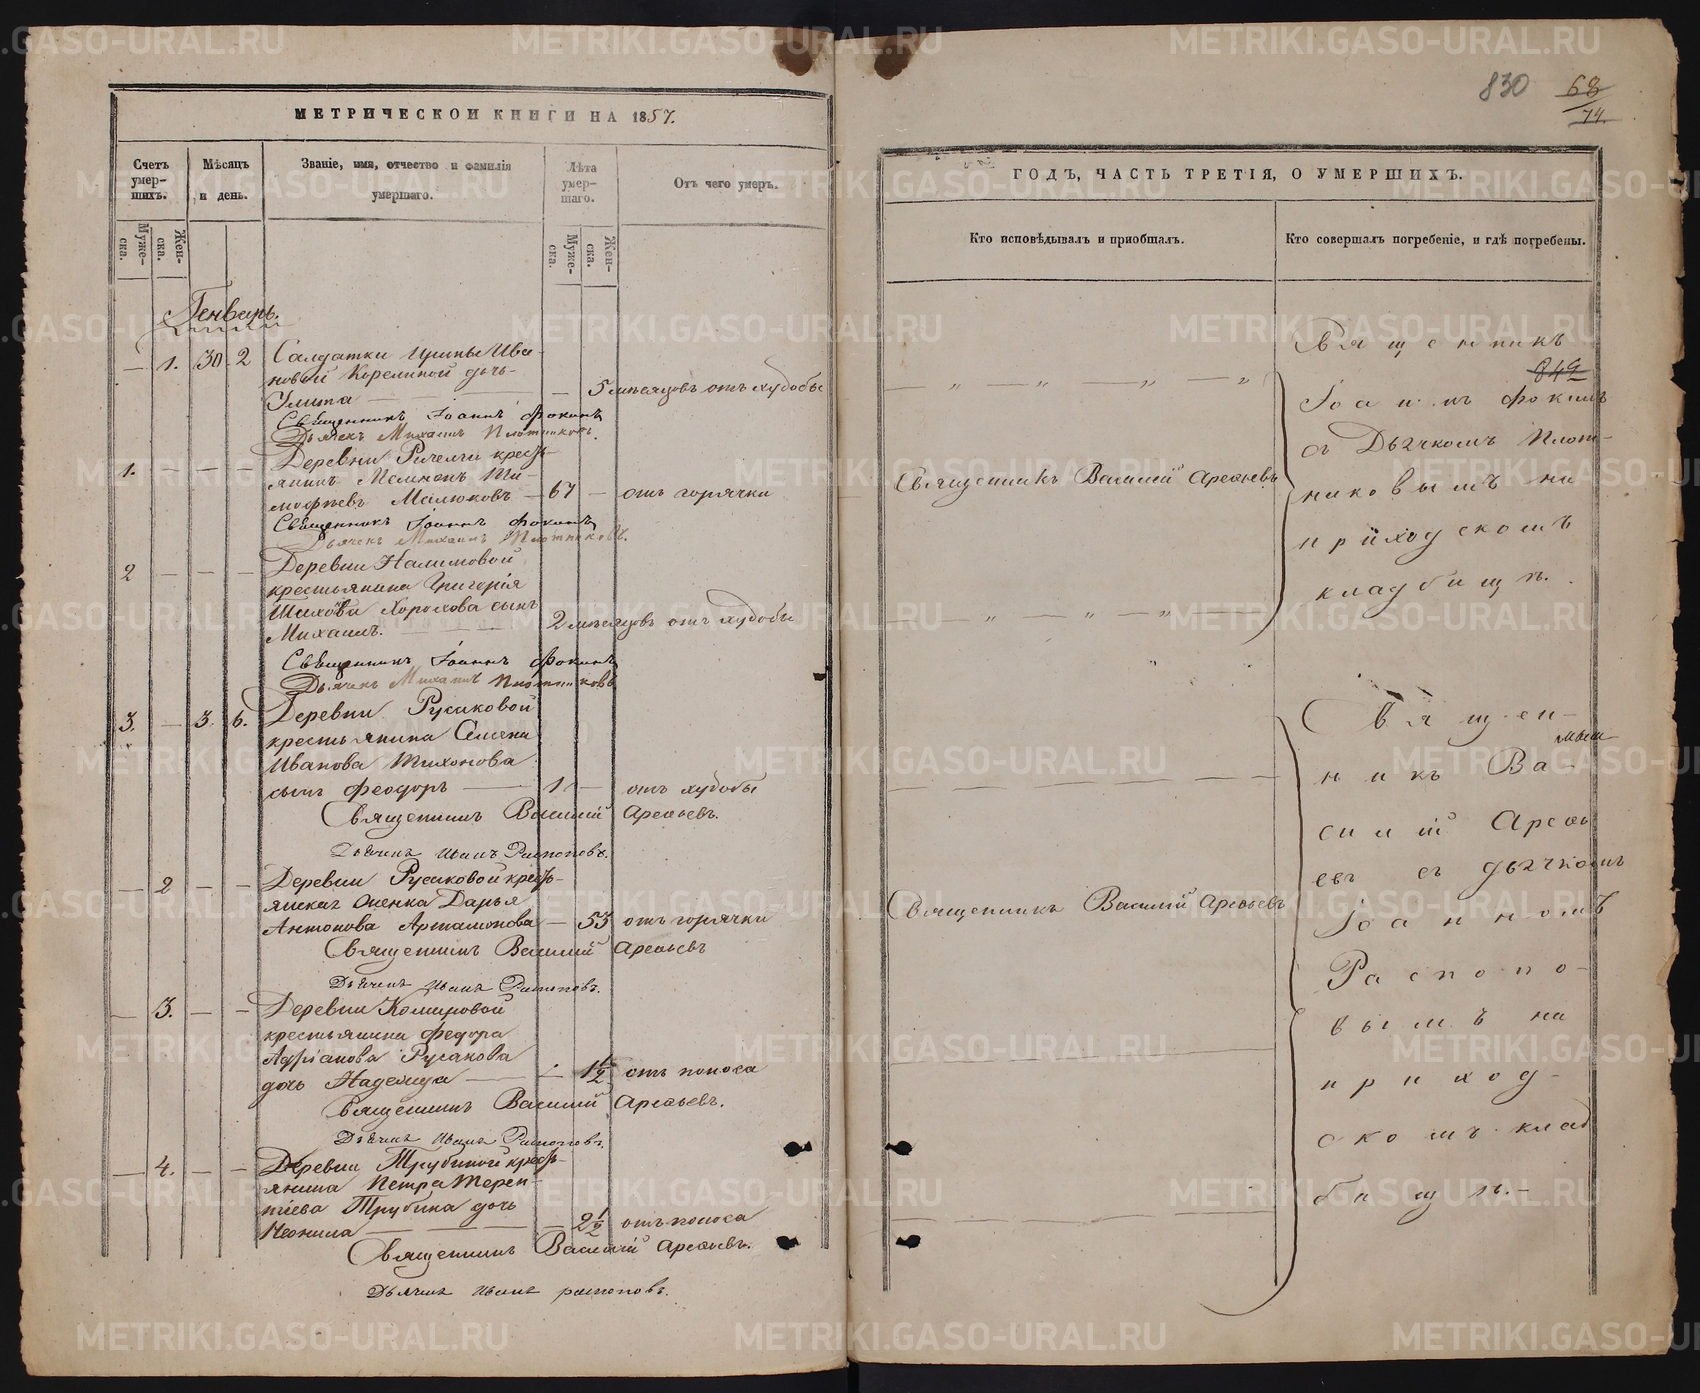 МЕТРИЧЕСКОЙ КНИГИ НА 1857.
Счетъ умер-шихъ.
Мѣсяцъ и день.
Званіе, имя, отчество и фамилія умершаго.
Лѣта умер-шаго.
Отъ чего умеръ.
Муже-ска.
Жен-ска.
Муже-ска.
Жен-ска.
Генварь.
— 1. 30 2 Салдатки Ирины Ива-
новой Корелиной дочь
Улита — — 5 мѣсяцовъ отъ худобы
Священникъ Іоаннъ Фокинъ
Дьячекъ Михаилъ Плотниковъ.
1. — — — Деревни Ричелги кресть-
янинъ Ти-
мофѣевъ Малюковъ — 67 — отъ горячки
Священникъ Іоаннъ Фокинъ
Дьячекъ Михаилъ Плотниковъ.
2 — — — Деревни Налимовой
крестьянина Григорія
Хорохова сынъ
Михаилъ. — 2 мѣсяцовъ отъ худобы
Священникъ Іоаннъ Фокинъ
Дьячекъ Михаилъ Плотниковъ
3. — 3. 6. Деревни Русаковой
крестьянина Семена
Иванова Тихонова
сынъ Феодоръ — 1 — отъ худобы
Священникъ Василій Арефьевъ.
Дьячекъ Иванъ Распоповъ.
— 2 — — Деревни Русаковой кресть-
янская женка Дарья
Антонова Артамонова — 53 отъ горячки
Священникъ Василій Арефьевъ
Дьячекъ Иванъ Распоповъ.
— 3. — — Деревни Комаровой
крестьянина Федора
Адріанова Русакова
дочь Надежда — — 1½ отъ поноса
Священникъ Василій Арефьевъ.
Дьячекъ Иванъ Распоповъ.
— 4. — — Деревни Трубиной кресть-
янина Петра Терен-
тіева Трубина дочь
Неонила — — 2½ отъ поноса
Священникъ Василій Арефьевъ.
Дьячекъ Иванъ Распоповъ.
830 68
74.
ГОДЪ, ЧАСТЬ ТРЕТІЯ, О УМЕРШИХЪ.
Кто исповѣдывалъ и пріобщалъ.
Кто совершалъ погребеніе, и гдѣ погребены.
Священникъ
849
Іоаннъ Фокинъ
съ Дьячкомъ Плот-
никовымъ на
приходскомъ
кладбищѣ.
Священникъ Василій Арефьевъ
Священ-
никъ Ва-
силій Арефь
евъ съ дьячкомъ
Іоанномъ
Распопо-
вымъ на
приход-
скомъ клад
бищѣ.-
Священникъ Василій Арефьевъ
METRIKI.GASO-URAL.RU